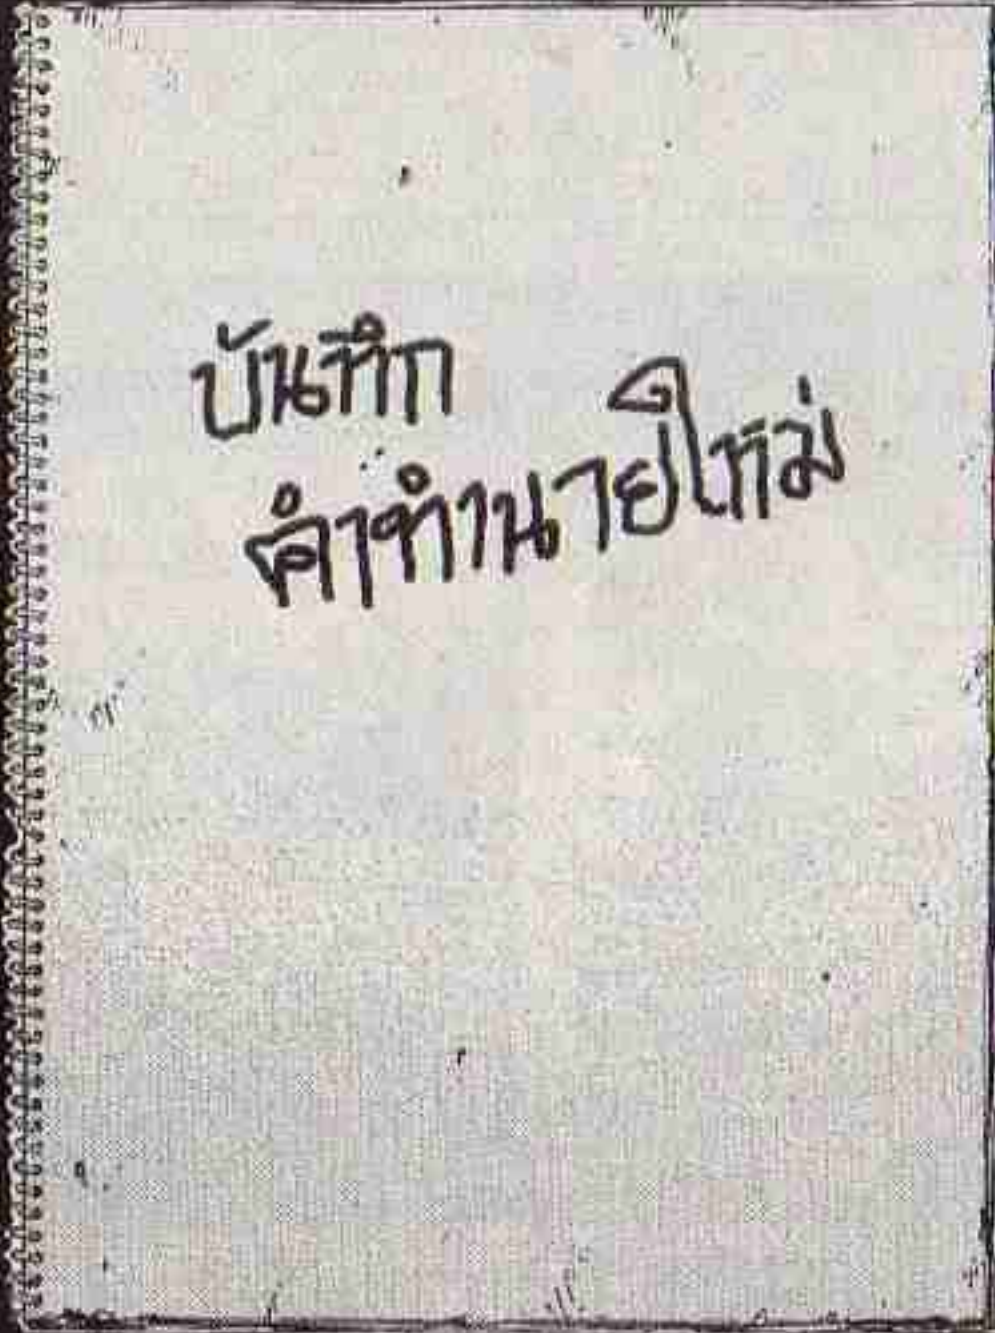 บันทึก
คำทำนายใหม่